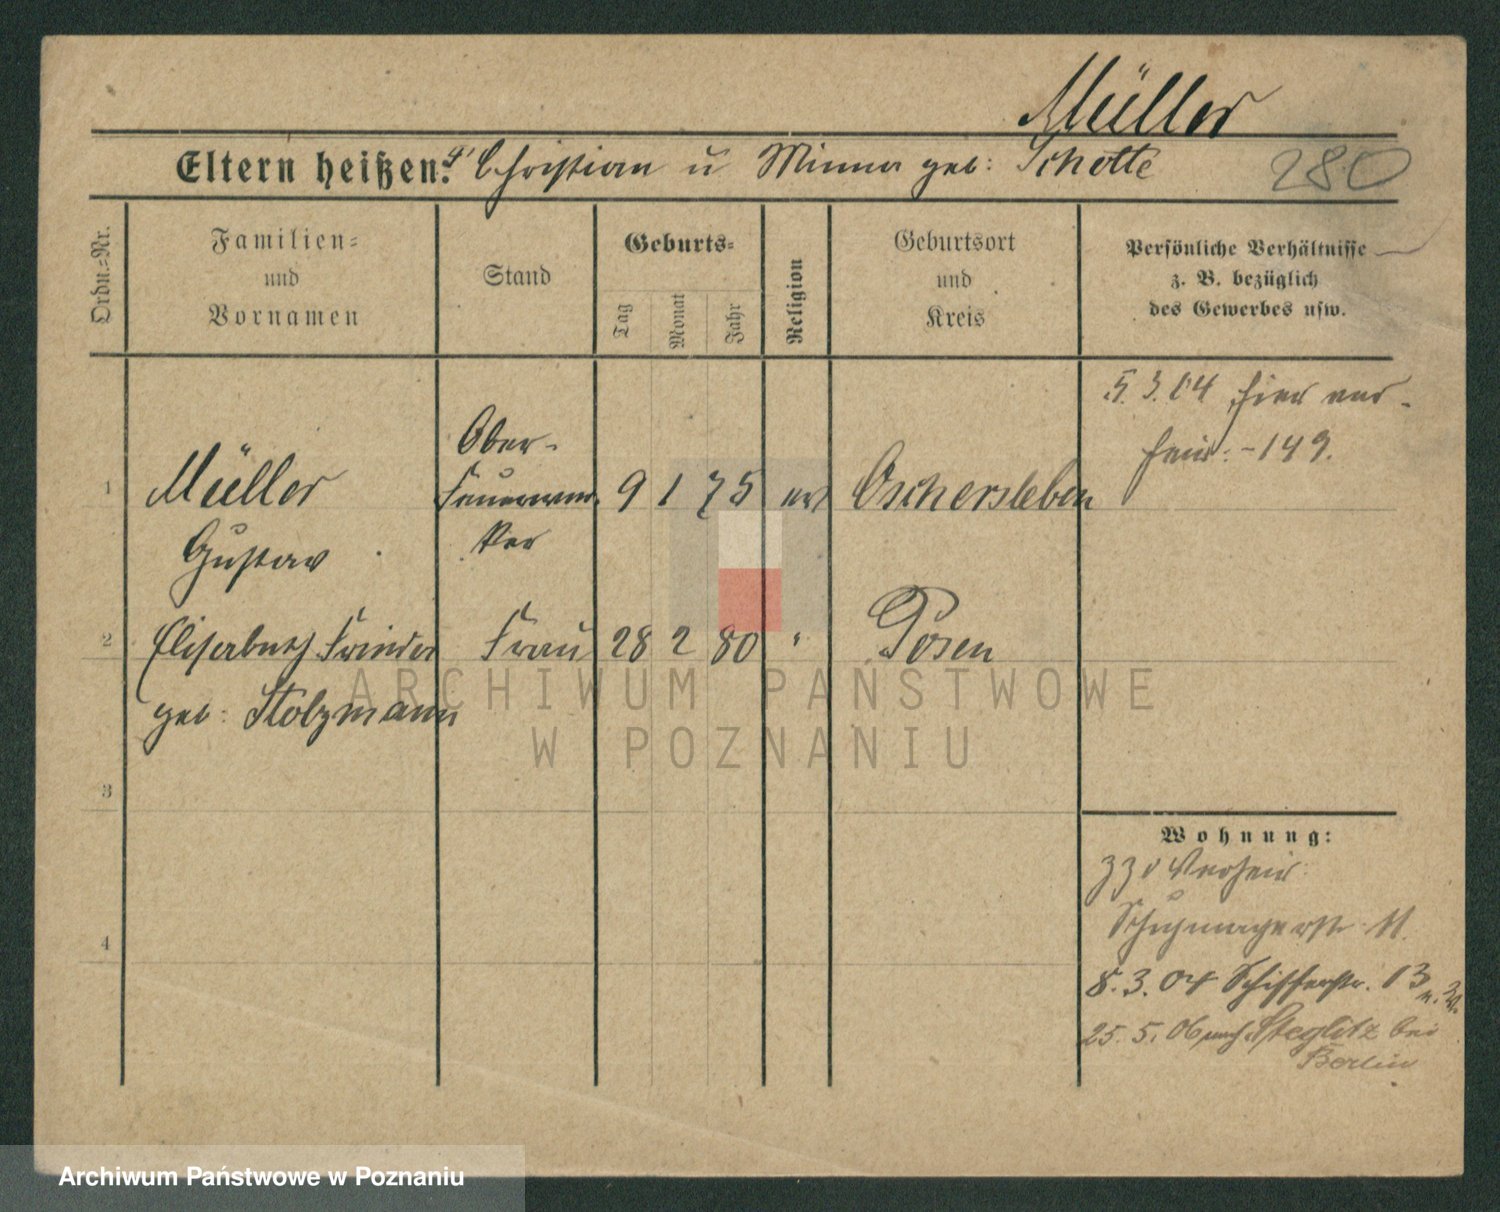 Müller
Eltern heißen: Christian u Minna geb: Schotte
280
Ordn.-Nr.
Familien-
und
Vornamen
Stand
Geburts-
Tag
Monat
Jahr
Religion
Geburtsort
und
Kreis
Persönliche Verhältnisse
z. B. bezüglich
des Gewerbes usw.
5. 3. 04 hier ver-
heir: - 149.
1
Müller
Gustav
Ober-
Feuerwer-
ker
9 1 75 ev Oschersleben
2
Elisabeth Frieder
geb: Stolzmann
Frau 28 2 80 " Posen
3
4
Wohnung:
Schuhmacherstr 11.
8. 3. 04 Schifferstr. 13
25. 5. 06 nach Steglitz bei
Berlin
ARCHIWUM PAŃSTWOWE
W POZNANIU
Archiwum Państwowe w Poznaniu